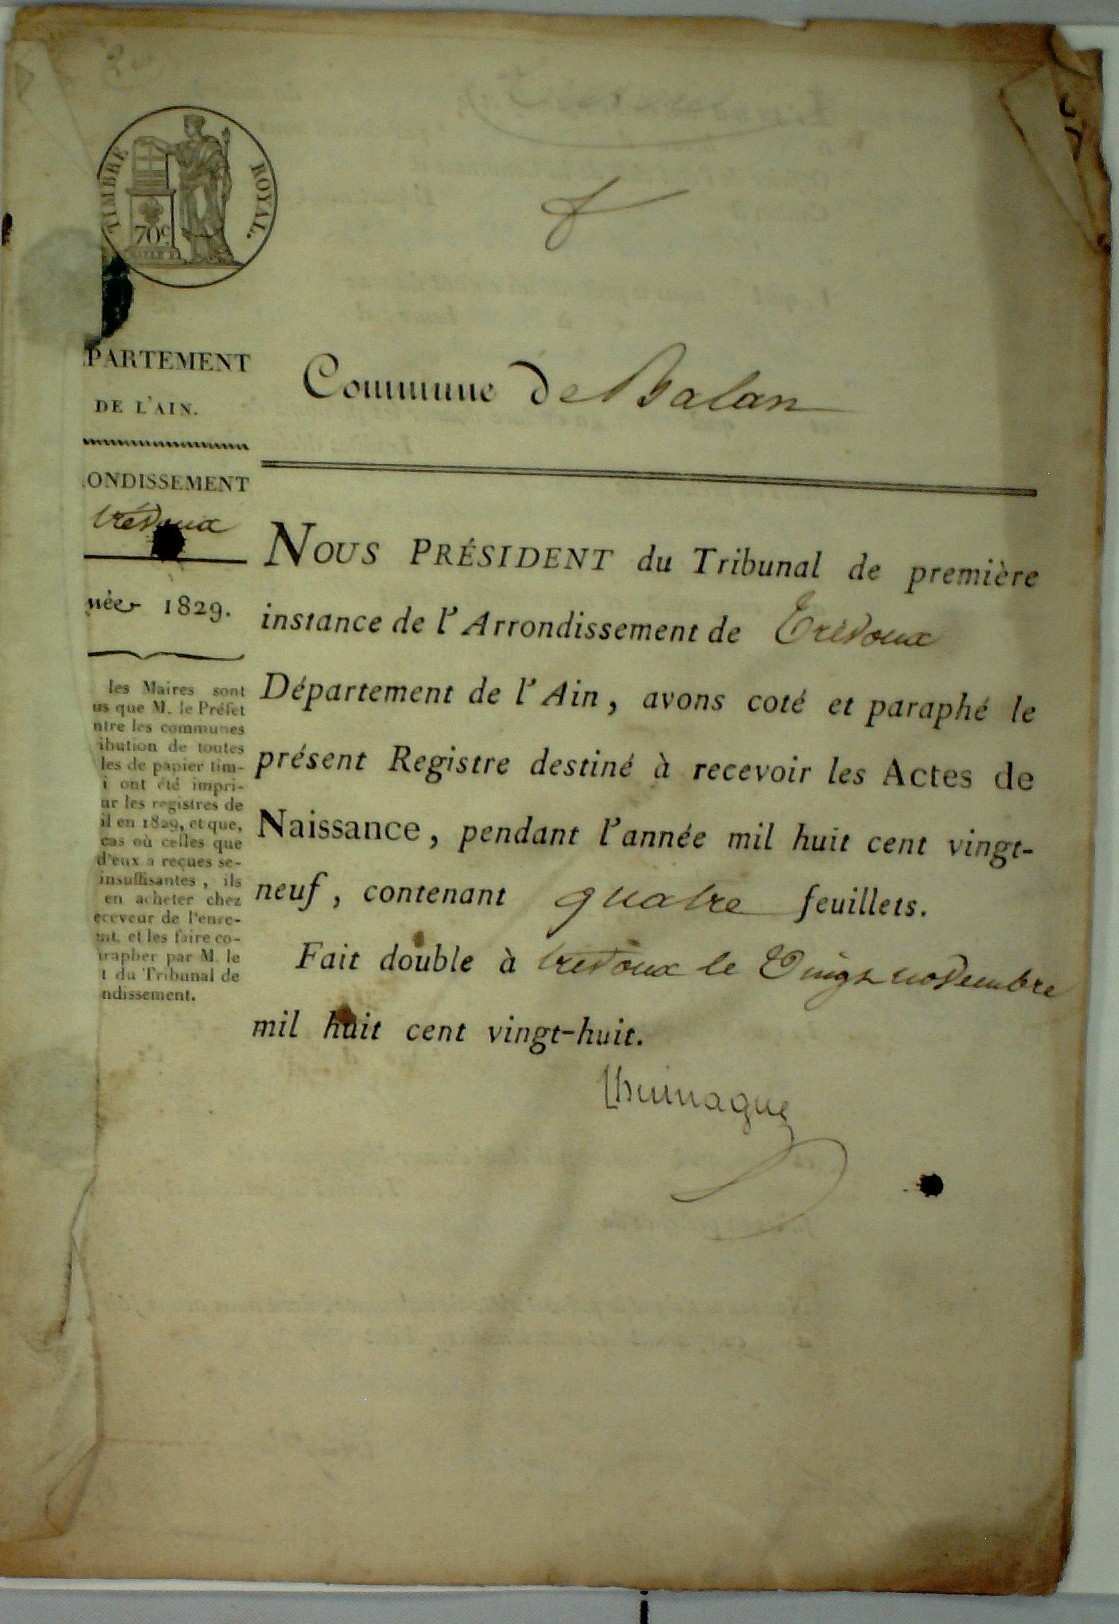 TIMBRE ROYAL.
70c
PARTEMENT
DE L'AIN.
ONDISSEMENT
trévoux
née 1829.
les Maires sont
us que M. le Préfet
ntre les communes
ibution de toutes
les de papier tim-
i ont été impri-
ur les registres de
il en 1829, et que,
cas où celles que
d'eux a reçues se-
insuffisantes, ils
en acheter chez
eceveur de l'enre-
nt. et les faire co-
arapher par M. le
t du Tribunal de
ndissement.
Commune de Balan
NOUS PRÉSIDENT du Tribunal de première
instance de l'Arrondissement de Trévoux
Département de l'Ain, avons coté et paraphé le
présent Registre destiné à recevoir les Actes de
Naissance, pendant l'année mil huit cent vingt-
neuf, contenant quatre feuillets.
Fait double à trévoux le Vingt novembre
mil huit cent vingt-huit.